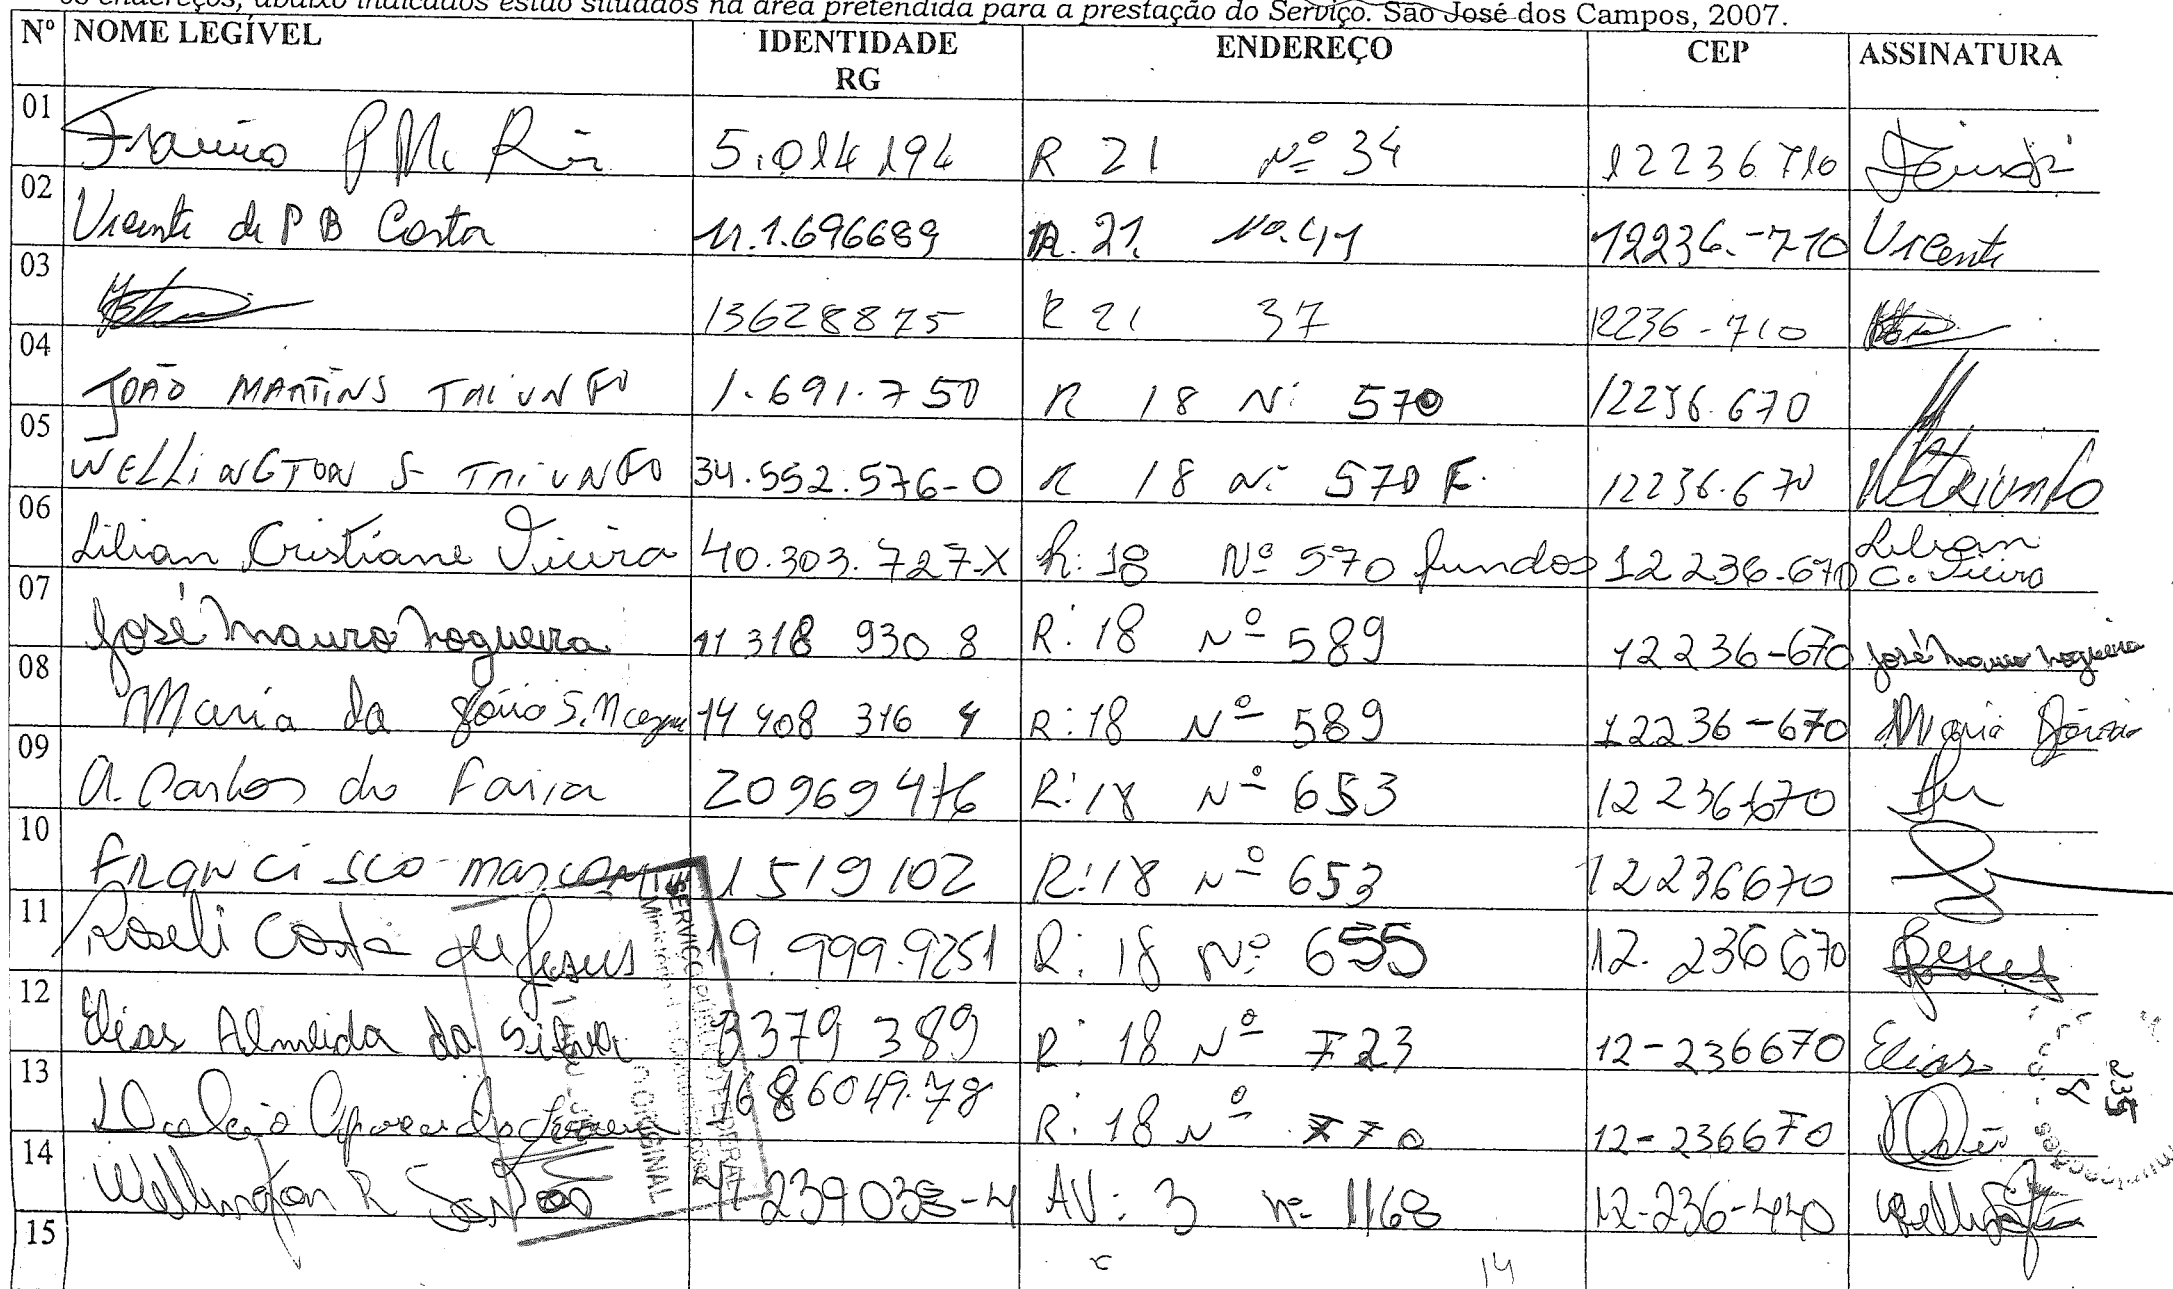 os endereços, abaixo indicados estão situados na área pretendida para a prestação do Serviço. São José dos Campos, 2007.
Nº NOME LEGÍVEL IDENTIDADE RG ENDEREÇO CEP ASSINATURA
01 P M 5.014 194 R 21 Nº 34 12236 710
02 Vicente de P B Costa 11.1.696689 R. 21. Nº. 41 12236.-710 Vicente
03 13628875 R 21 37 12236-710
04 JOÃO MARTINS TRIUNFO 1.691.750 R 18 N: 570 12236.670
05 WELLINGTON S TRIUNFO 34.552.576-0 R 18 N: 570 F. 12236.670 WSTriunfo
06 Lilian Cristiane Vieira 40.303.727-X R: 18 Nº 570 fundos 12236-670 Lilian C. Vieira
07 José Mauro Nogueira 11 318 930 8 R: 18 Nº 589 12236-670 José Mauro Nogueira
08 Maria da S. 14 408 316 4 R: 18 Nº 589 12236-670 Maria
09 A. Carlos de Faria 20969476 R: 18 Nº 653 12236670
10 Francisco 1519102 R: 18 Nº 653 12236670
11 Roseli Costa de Jesus 19.999.9251 R: 18 Nº 655 12.236670 Jesus
12 Elias Almeida da Silva 3379 389 R: 18 Nº 723 12-236670 Elias
13 Aparecida R: 18 Nº 770 12-236670
14 Wellington R Santos AV: 3 nº 1168 12-236-440
15
14
SERVIÇO PÚBLICO FEDERAL
ORIGINAL
235